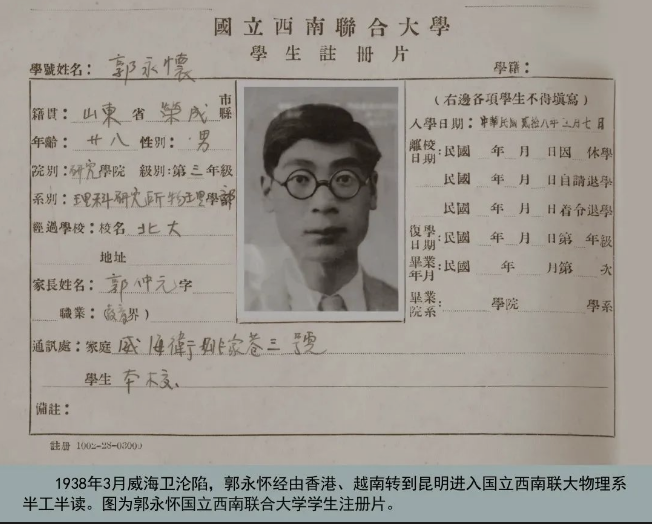 國立西南聯合大學
學生註冊片
學號姓名：郭永懷
學籍：
籍貫：山東省榮成市縣
年齡：廿八 性別：男
院別：研究學院 級別：第三年級
系別：理科研究所物理學部
經過學校：校名 北大
地址
家長姓名：郭仲元 字
職業：（教育界）
通訊處：家庭 威海衛 姚家巷三號
學生 本校
備註：
（右邊各項學生不得填寫）
入學日期：中華民國 八年 月七日
離校日期：民國 年 月 日因 休學
民國 年 月 日自請退學
民國 年 月 日着令退學
復學日期：民國 年 月 日第 年級
畢業年月：民國 年 月第 次
畢業院系： 學院 學系
註冊 1002-28-03000
1938年3月威海卫沦陷，郭永怀经由香港、越南转到昆明进入国立西南联大物理系
半工半读。图为郭永怀国立西南联合大学学生注册片。